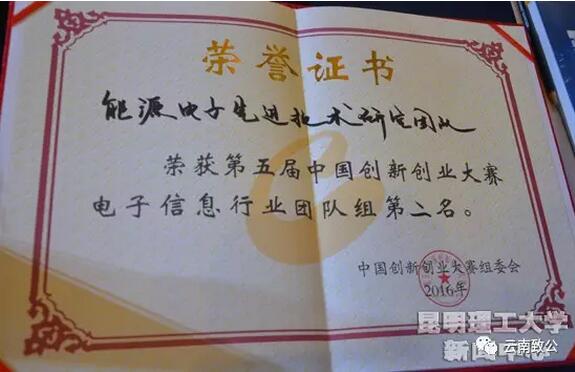 荣誉证书
能源电子先进技术研究团队
荣获第五届中国创新创业大赛
电子信息行业团队组第二名。
中国创新创业大赛组委会
2016年
昆明理工大学
新闻中心
云南致公